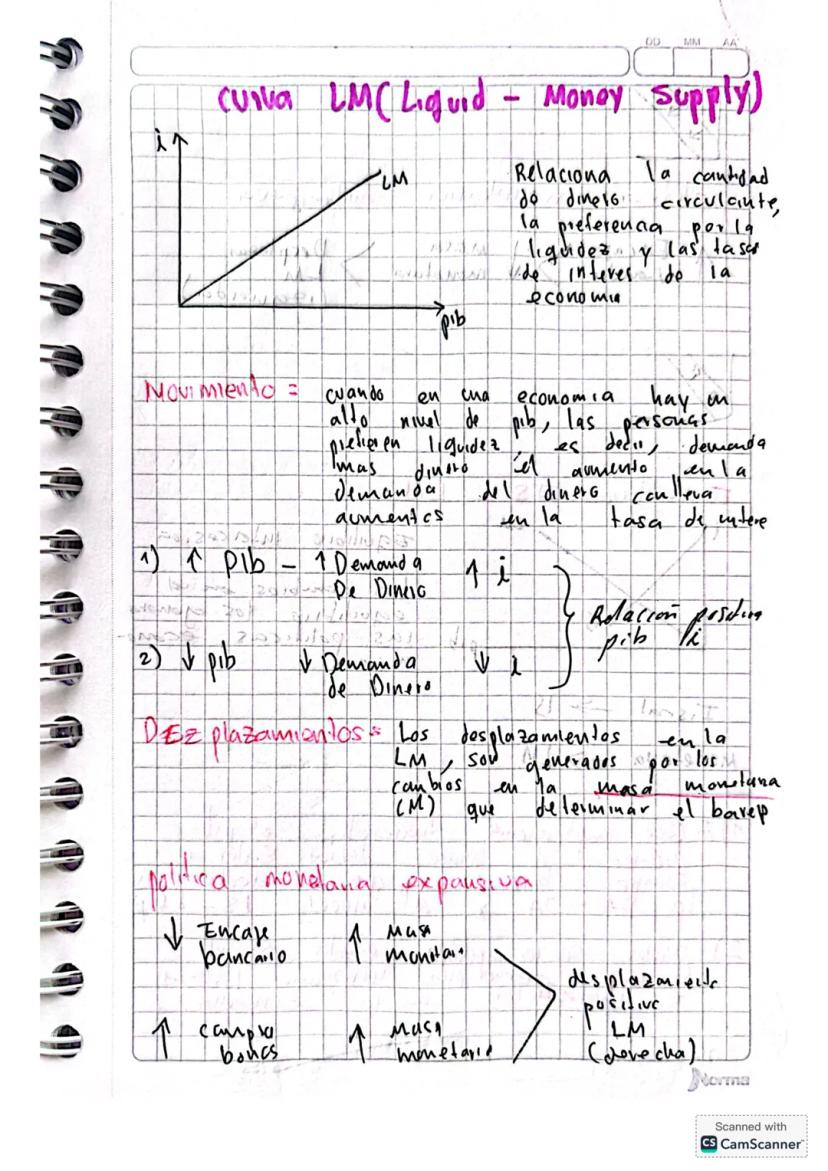 DD MM AA
curva LM (Liquid - Money Supply)
i
LM
pib
Relaciona la cantidad
de dinero circulante,
la preferencia por la
liquidez y las tasas
de interes de la
economia
Movimiento = cuando en una economia hay un
alto nivel de pib, las personas
prefieren liquidez, es decir, demanda
mas dinero el aumento en la
demanda del dinero conlleva
aumentos en la tasa de intere
1) ↑ PIb - ↑ Demanda ↑ i
De Dinero
Relacion positiva
pib i
2) ↓ pib ↓ Demanda ↓ i
de Dinero
DEzplazamientos = Los desplazamientos en la
LM, son generados por los
cambios en la masa monetaria
(M) que determinar el banrep
politica monetaria expansiva
↓ Encaje ↑ Masa
bancario monetari
desplazamiento
positivo
LM
(derecha)
↑ compra ↑ Masa
bonos monetaria
Norma
Scanned with
CS CamScanner